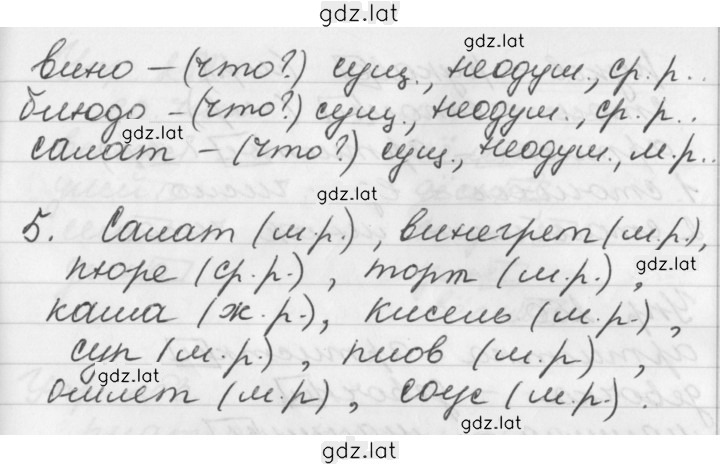 gdz.lat
gdz.lat
вино – (что?) сущ., неодуш., ср. р..
блюдо – (что?) сущ., неодуш., ср. р..
gdz.lat
салат – (что?) сущ., неодуш., м. р..
gdz.lat
5. Салат (м.р.), винегрет (м.р.),
gdz.lat
пюре (ср. р.), торт (м.р.),
каша (ж.р.), кисель (м.р.),
суп (м.р.), плов (м.р.),
gdz.lat
омлет (м.р.), соус (м.р.).
gdz.lat
gdz.lat